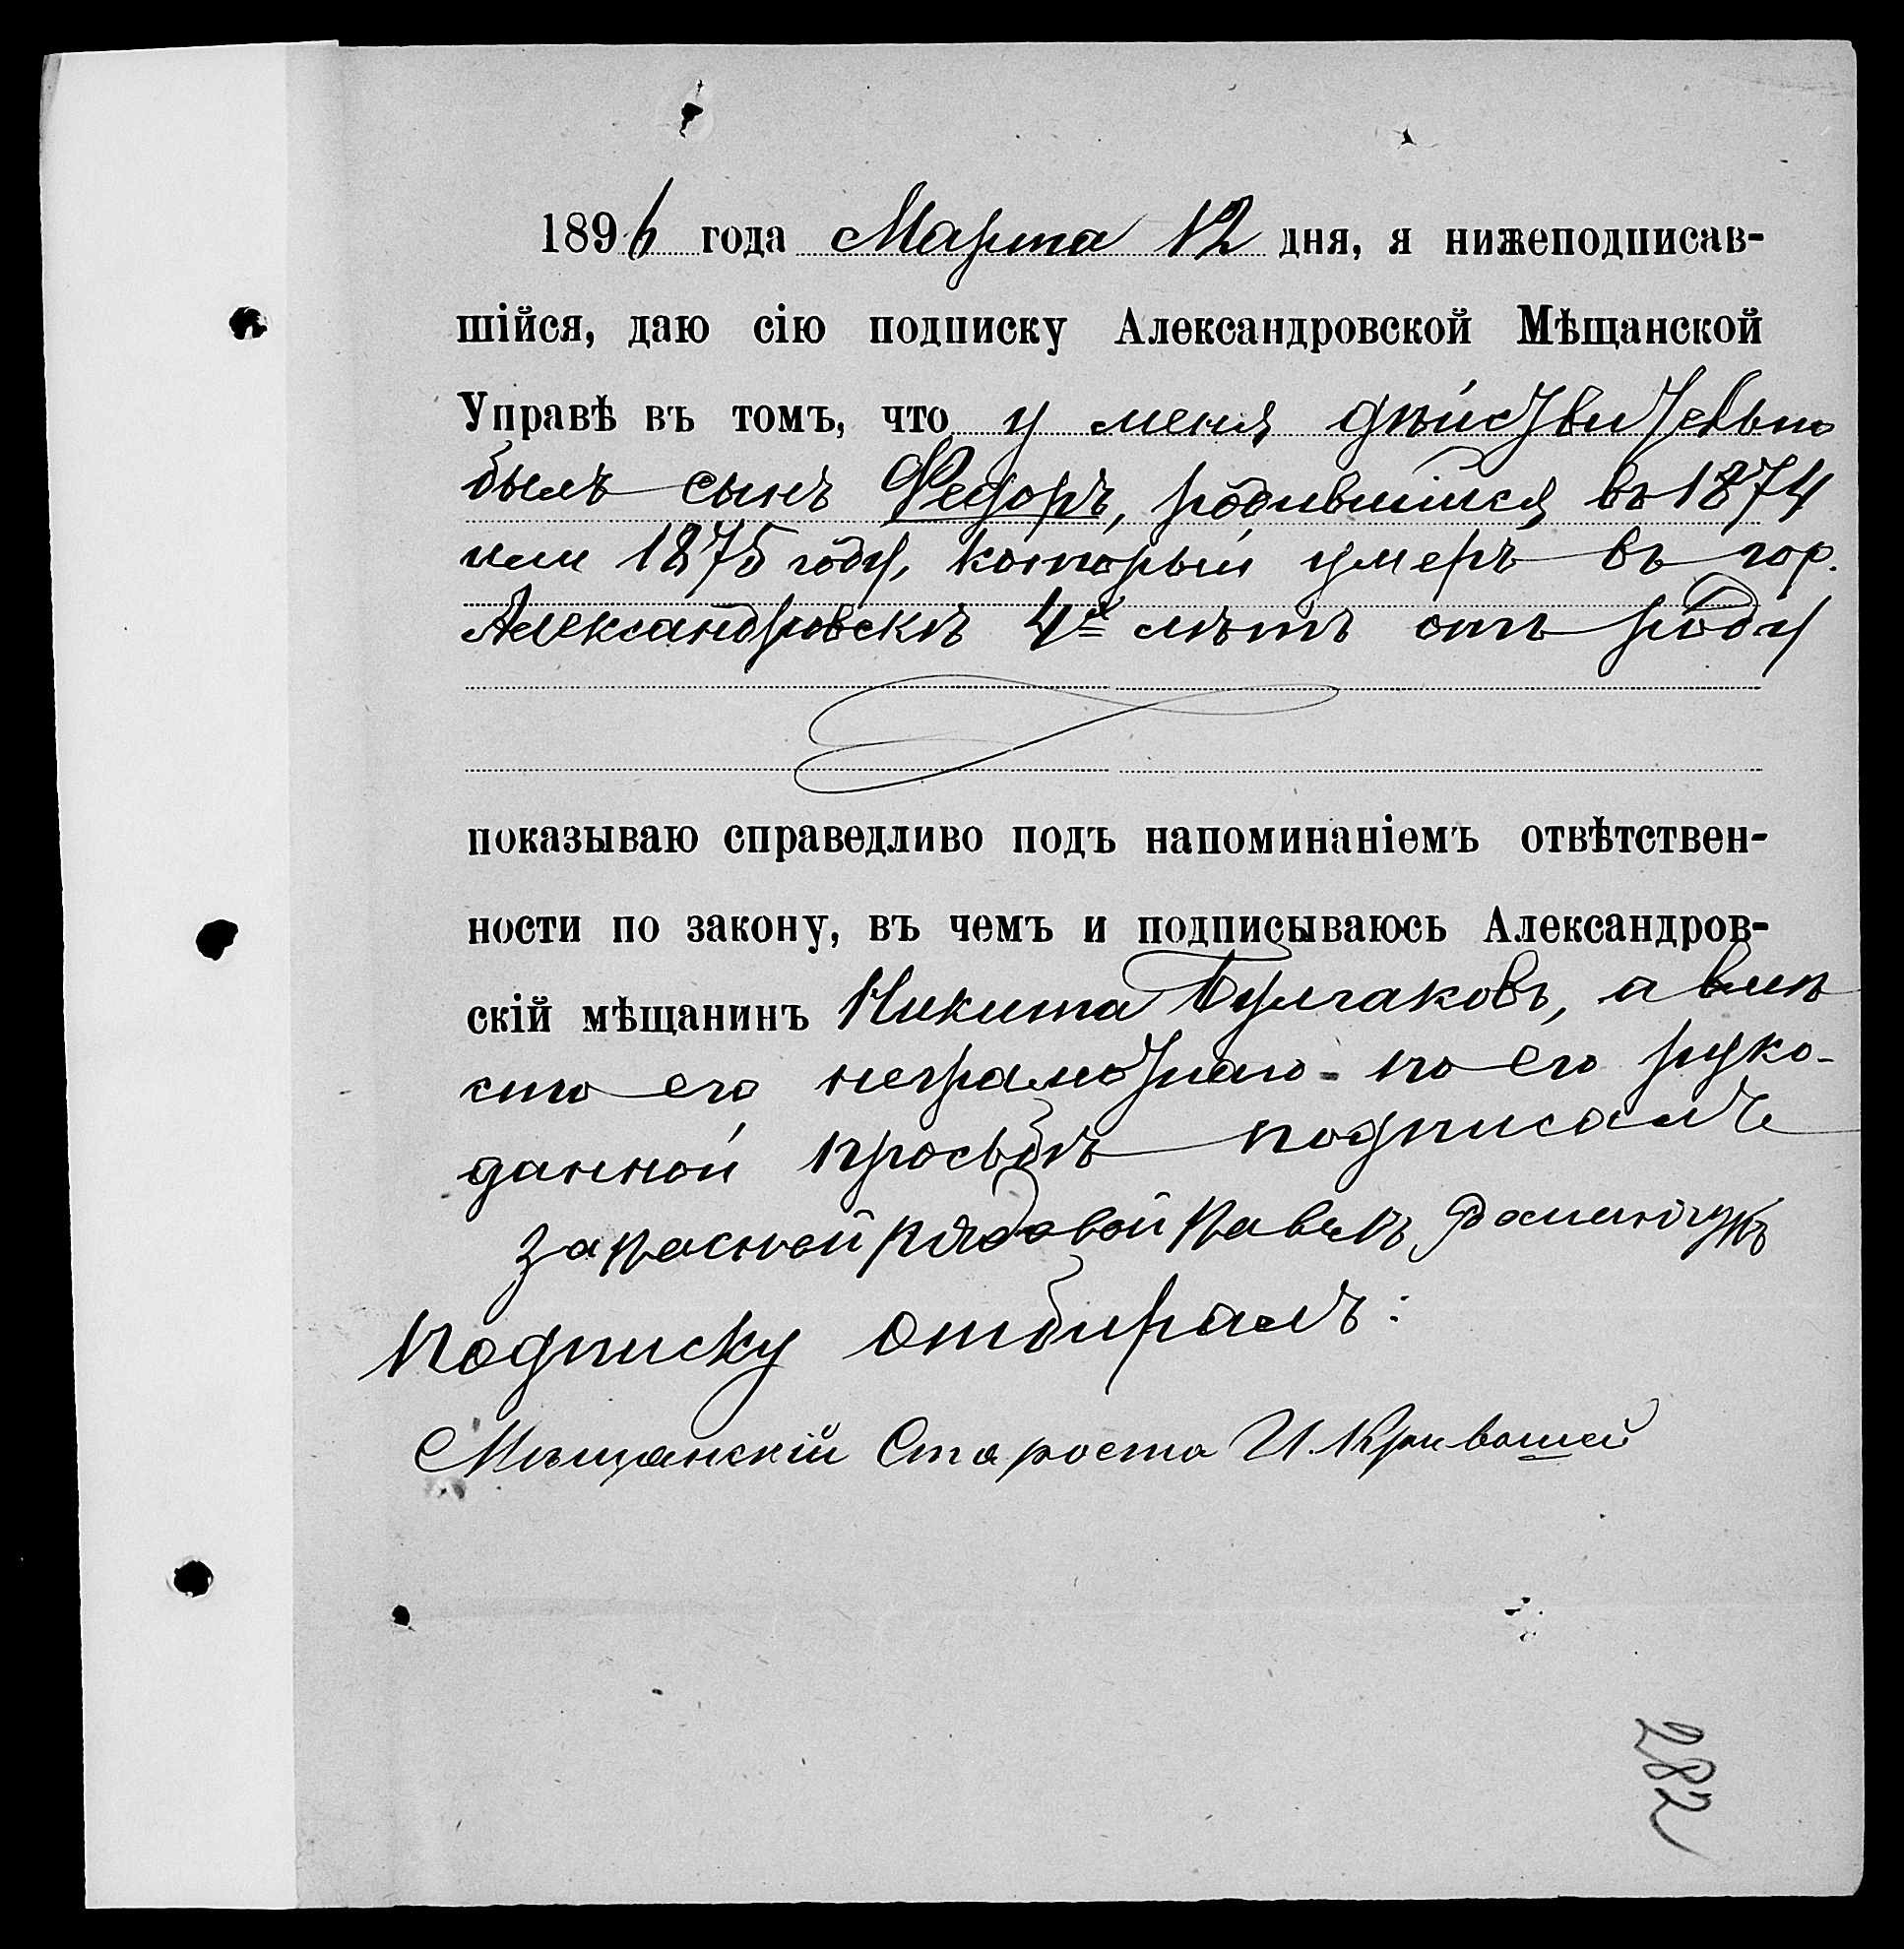 1896 года Марта 12 дня, я нижеподписав-
шійся, даю сію подписку Александровской Мѣщанской
Управѣ въ томъ, что у меня дѣйствительно
былъ сынъ Федоръ, родившійся въ 1874
или 1875 году, который умеръ въ гор.
Александровскѣ 4х лѣтъ отъ роду
показываю справедливо подъ напоминаніемъ отвѣтствен-
ности по закону, въ чемъ и подписываюсь Александров-
скій мѣщанинъ Никита Булгаковъ, а вмѣ
сто его неграмотнаго - по его руко-
данной просьбѣ подписалъ
запасной рядовой Павелъ
Подписку отбиралъ:
Мѣщанскій Староста И. Кривошей
282